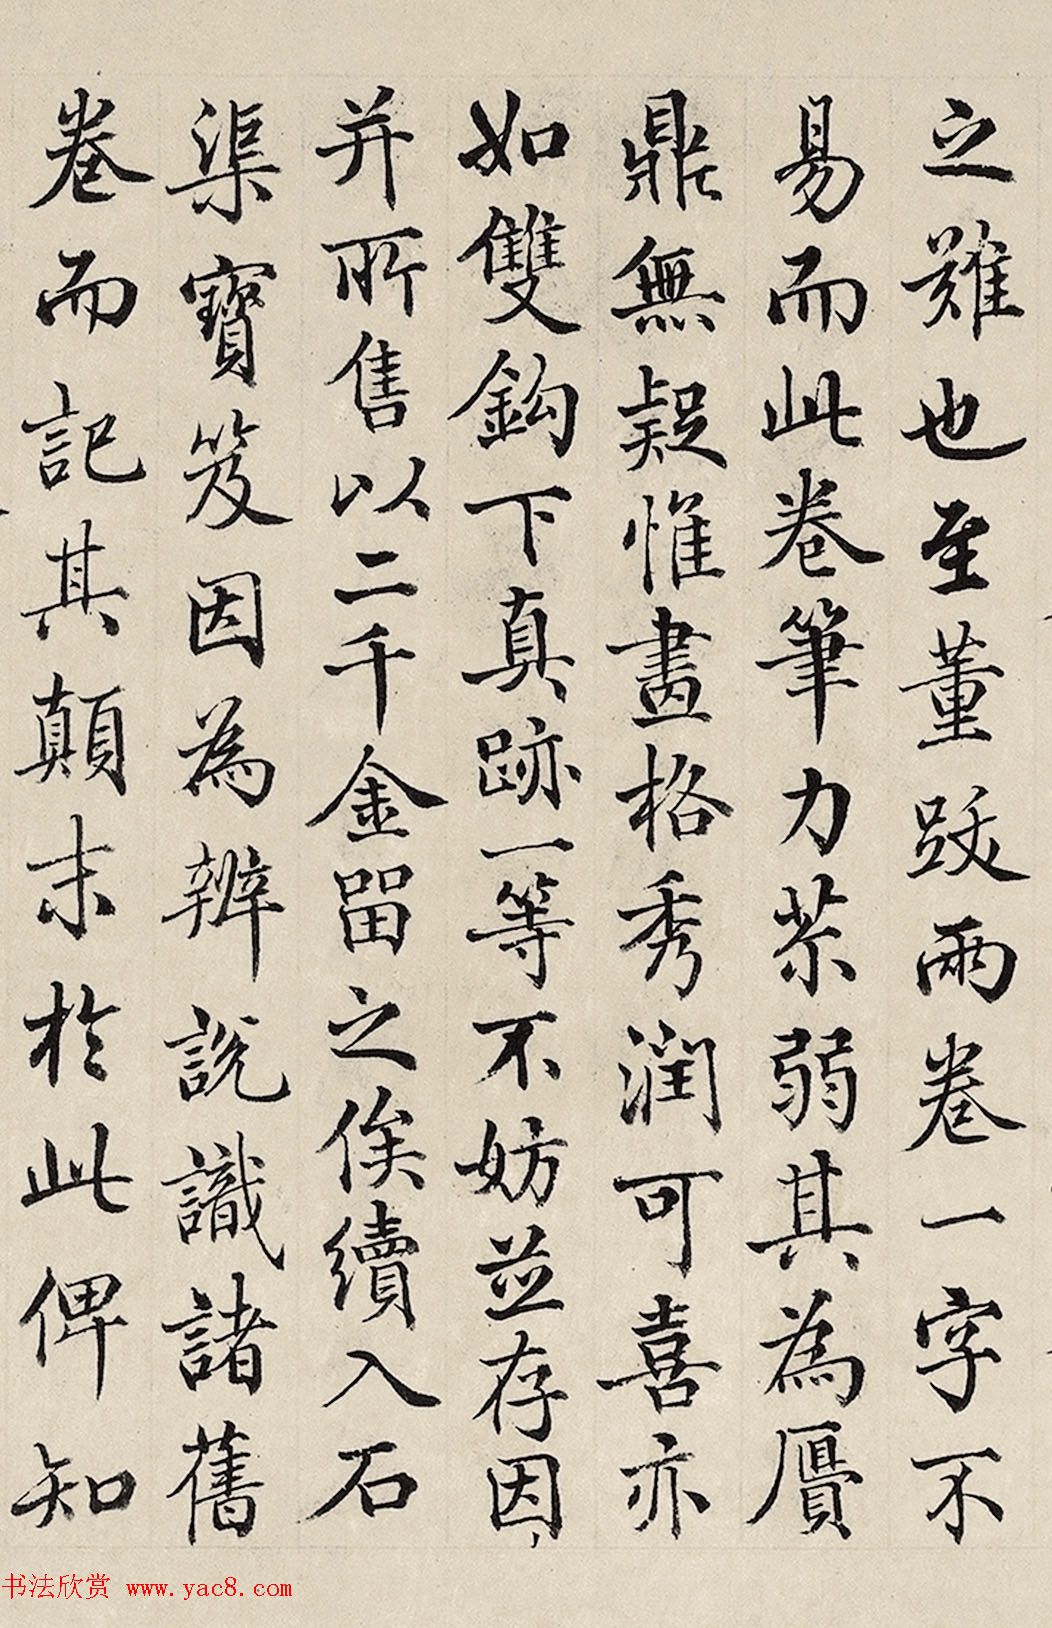 之難也至董跋兩卷一字不
易而此卷筆力苶弱其為贗
鼎無疑惟畫格秀潤可喜亦
如雙鈎下真跡一等不妨並存因
并所售以二千金留之俟續入石
渠寶笈因為辨說識諸舊
卷而記其顛末於此俾知
书法欣赏 www.yac8.com